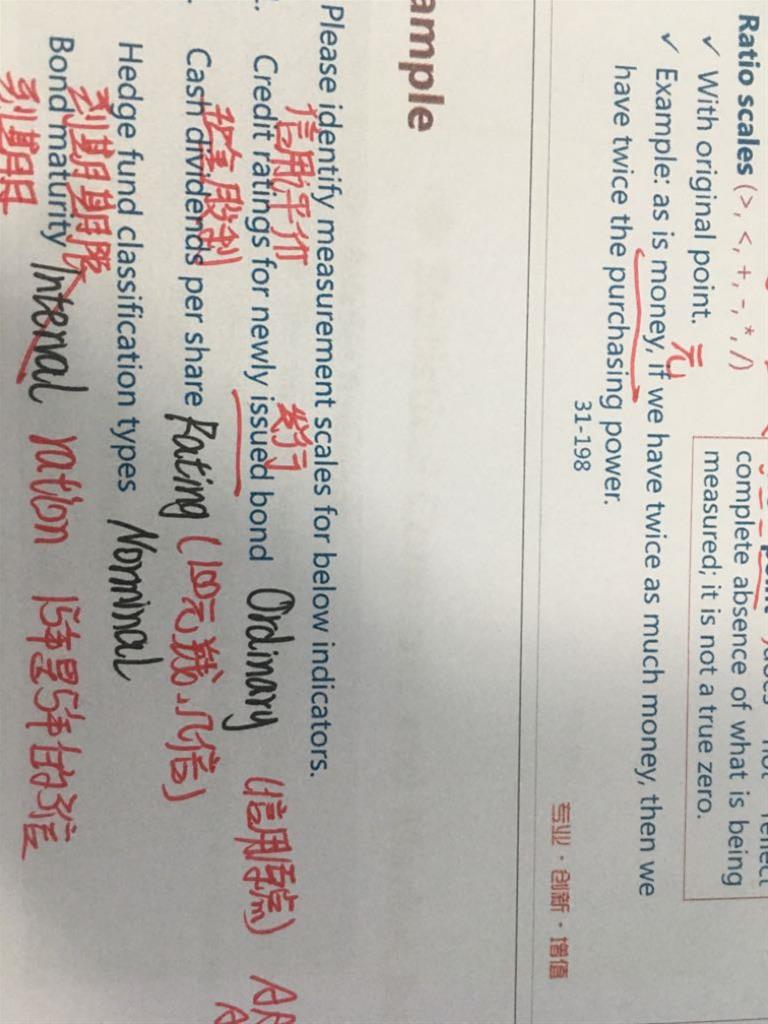 Ratio scales (>, <, +, -, *, /)
✓ With original point. 元
✓ Example: as is money, if we have twice as much money, then we
have twice the purchasing power.
31-198
complete absence of what is being
measured; it is not a true zero.
专业·创新·增值
ample
Please identify measurement scales for below indicators.
信用评价 发行
Credit ratings for newly issued bond Ordinary (信用原点)
Cash dividends per share Rating
Hedge fund classification types Nominal
到期期限
Bond maturity Interval ration 15年是5年的3倍
到期日